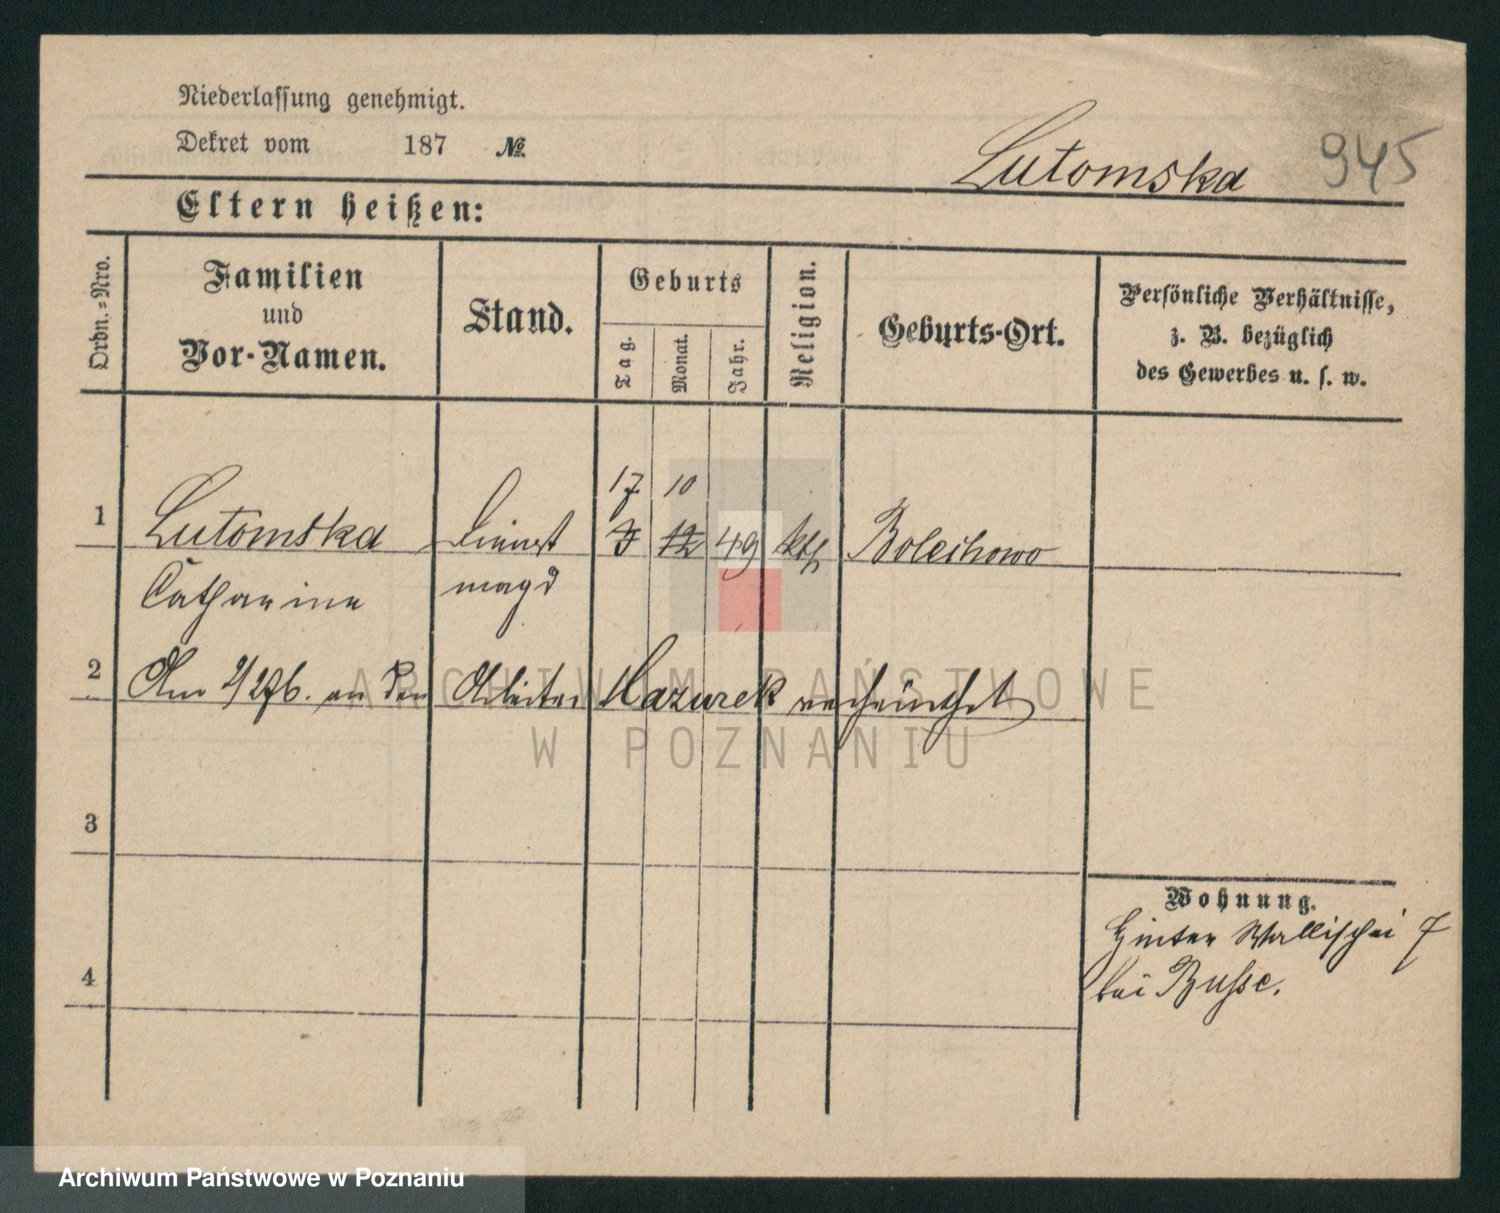 Niederlassung genehmigt.
Dekret vom 187 №
Lutomska 945
Eltern heißen:
Ordn.=Nro.
Familien
und
Vor-Namen.
Stand.
Geburts
Tag.
Monat.
Jahr.
Religion.
Geburts-Ort.
Persönliche Verhältnisse,
z. B. bezüglich
des Gewerbes u. s. w.
17 10
1 Lutomska Dienst 3 12 49 kth Bolechowo
Catharina magd
2 Am 2/2 76. an den Arbeiter Mazurek verheirathet
3
4
Wohnung.
Hinter Wallischei 7
bei Busse.
ARCHIWUM PAŃSTWOWE
W POZNANIU
Archiwum Państwowe w Poznaniu